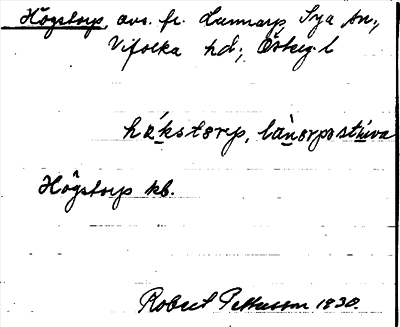 Högstorp, avs. fr. Lunnarp, Sya sn.,
Vifolka hd; Östergl.
hăkstorp, lanorpastuva
Högstorp kb.
Robert Pettersson 1930.